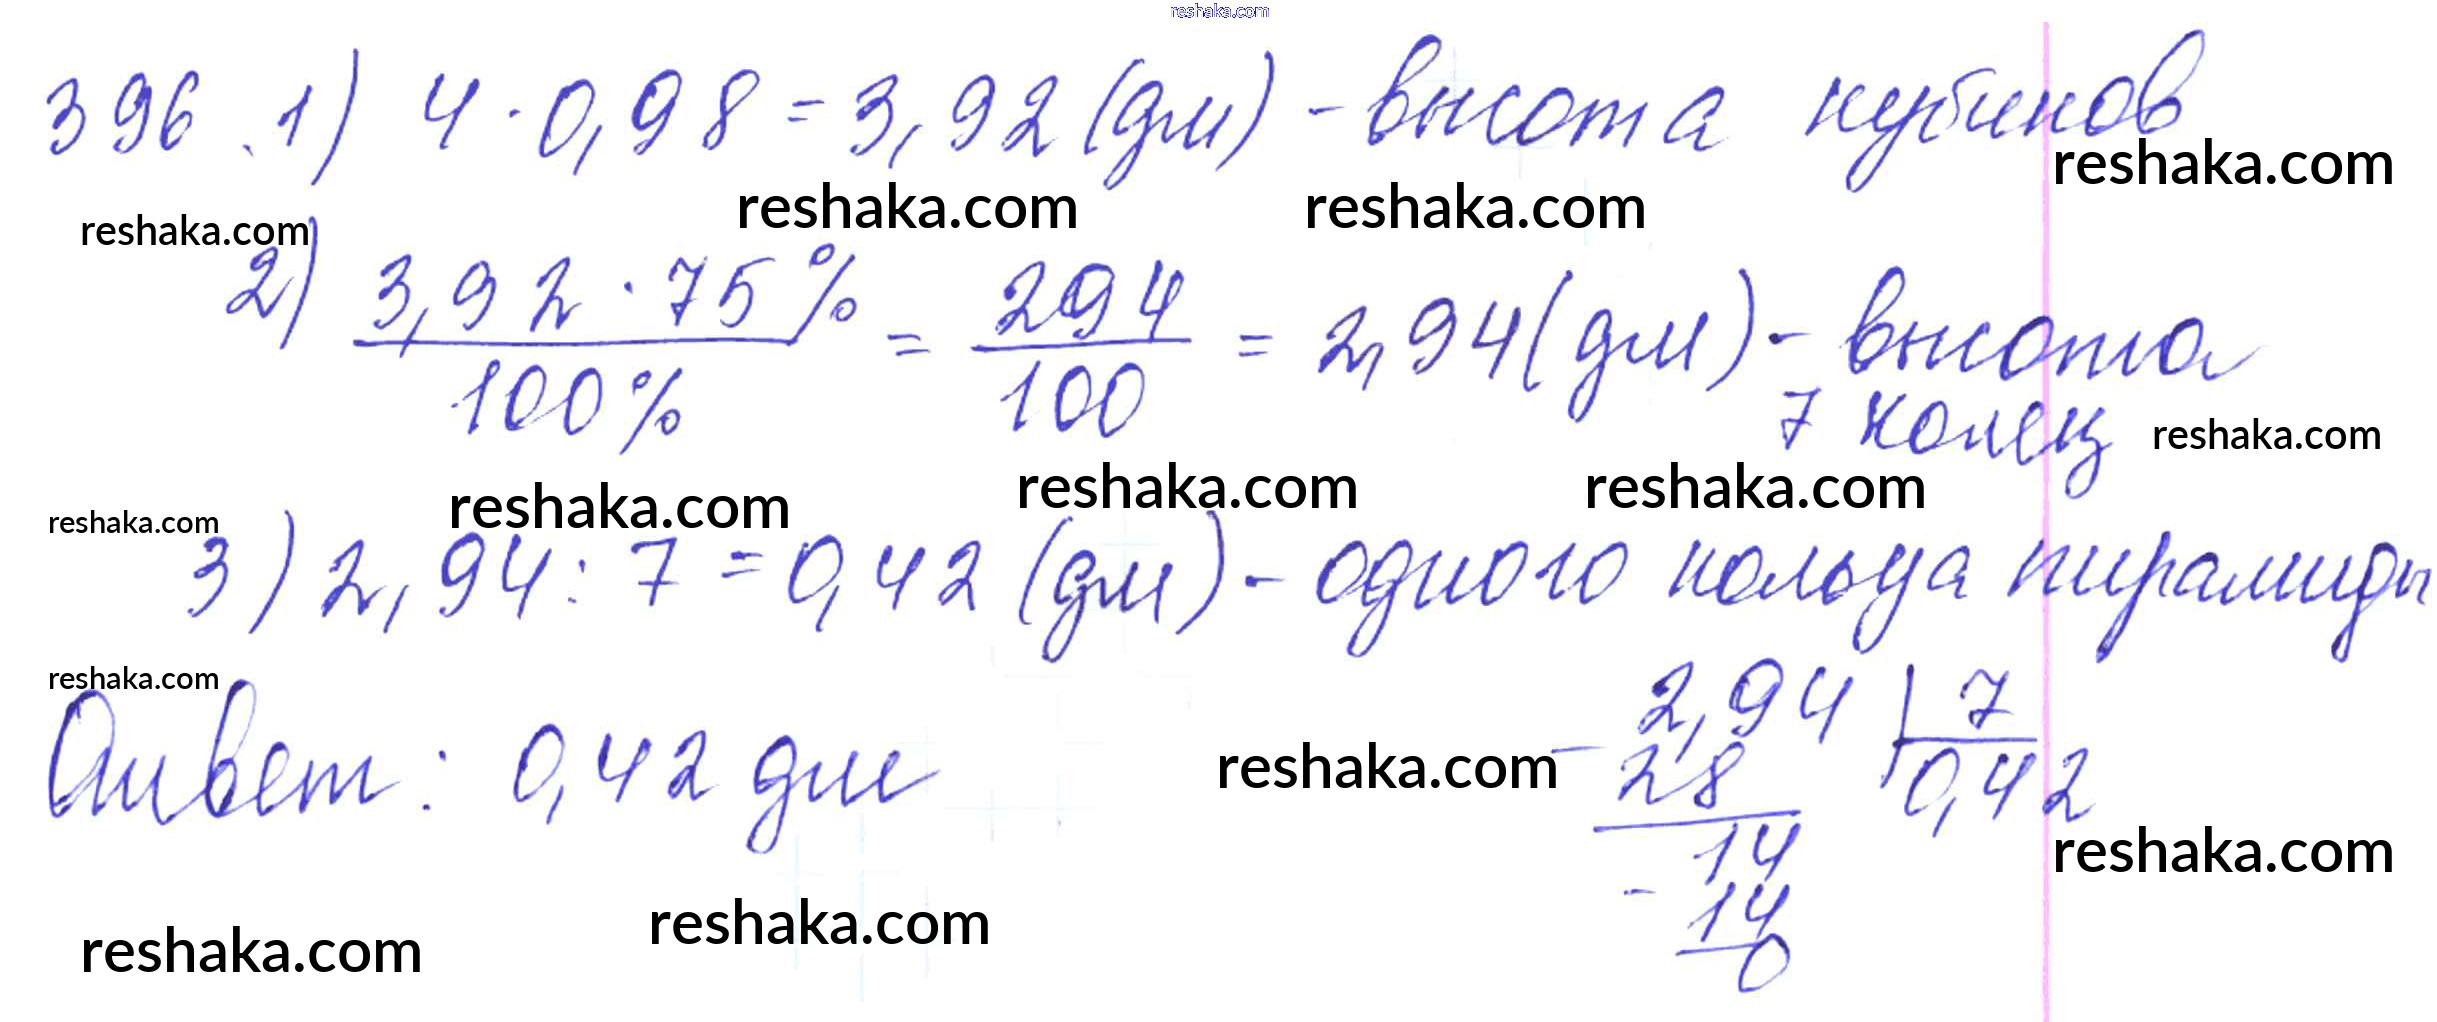 reshaka.com
396. 1) 4 · 0,98 = 3,92 (дм) - высота кубиков
reshaka.com
reshaka.com reshaka.com
reshaka.com
2) 3,92 · 75% / 100% = 294 / 100 = 2,94 (дм) - высота
7 колец
reshaka.com
reshaka.com reshaka.com
reshaka.com
reshaka.com
3) 2,94 : 7 = 0,42 (дм) - одного кольца пирамиды
reshaka.com
Ответ: 0,42 дм
reshaka.com
- 2,94 | 7
28 0,42
14
- 14
0
reshaka.com
reshaka.com
reshaka.com